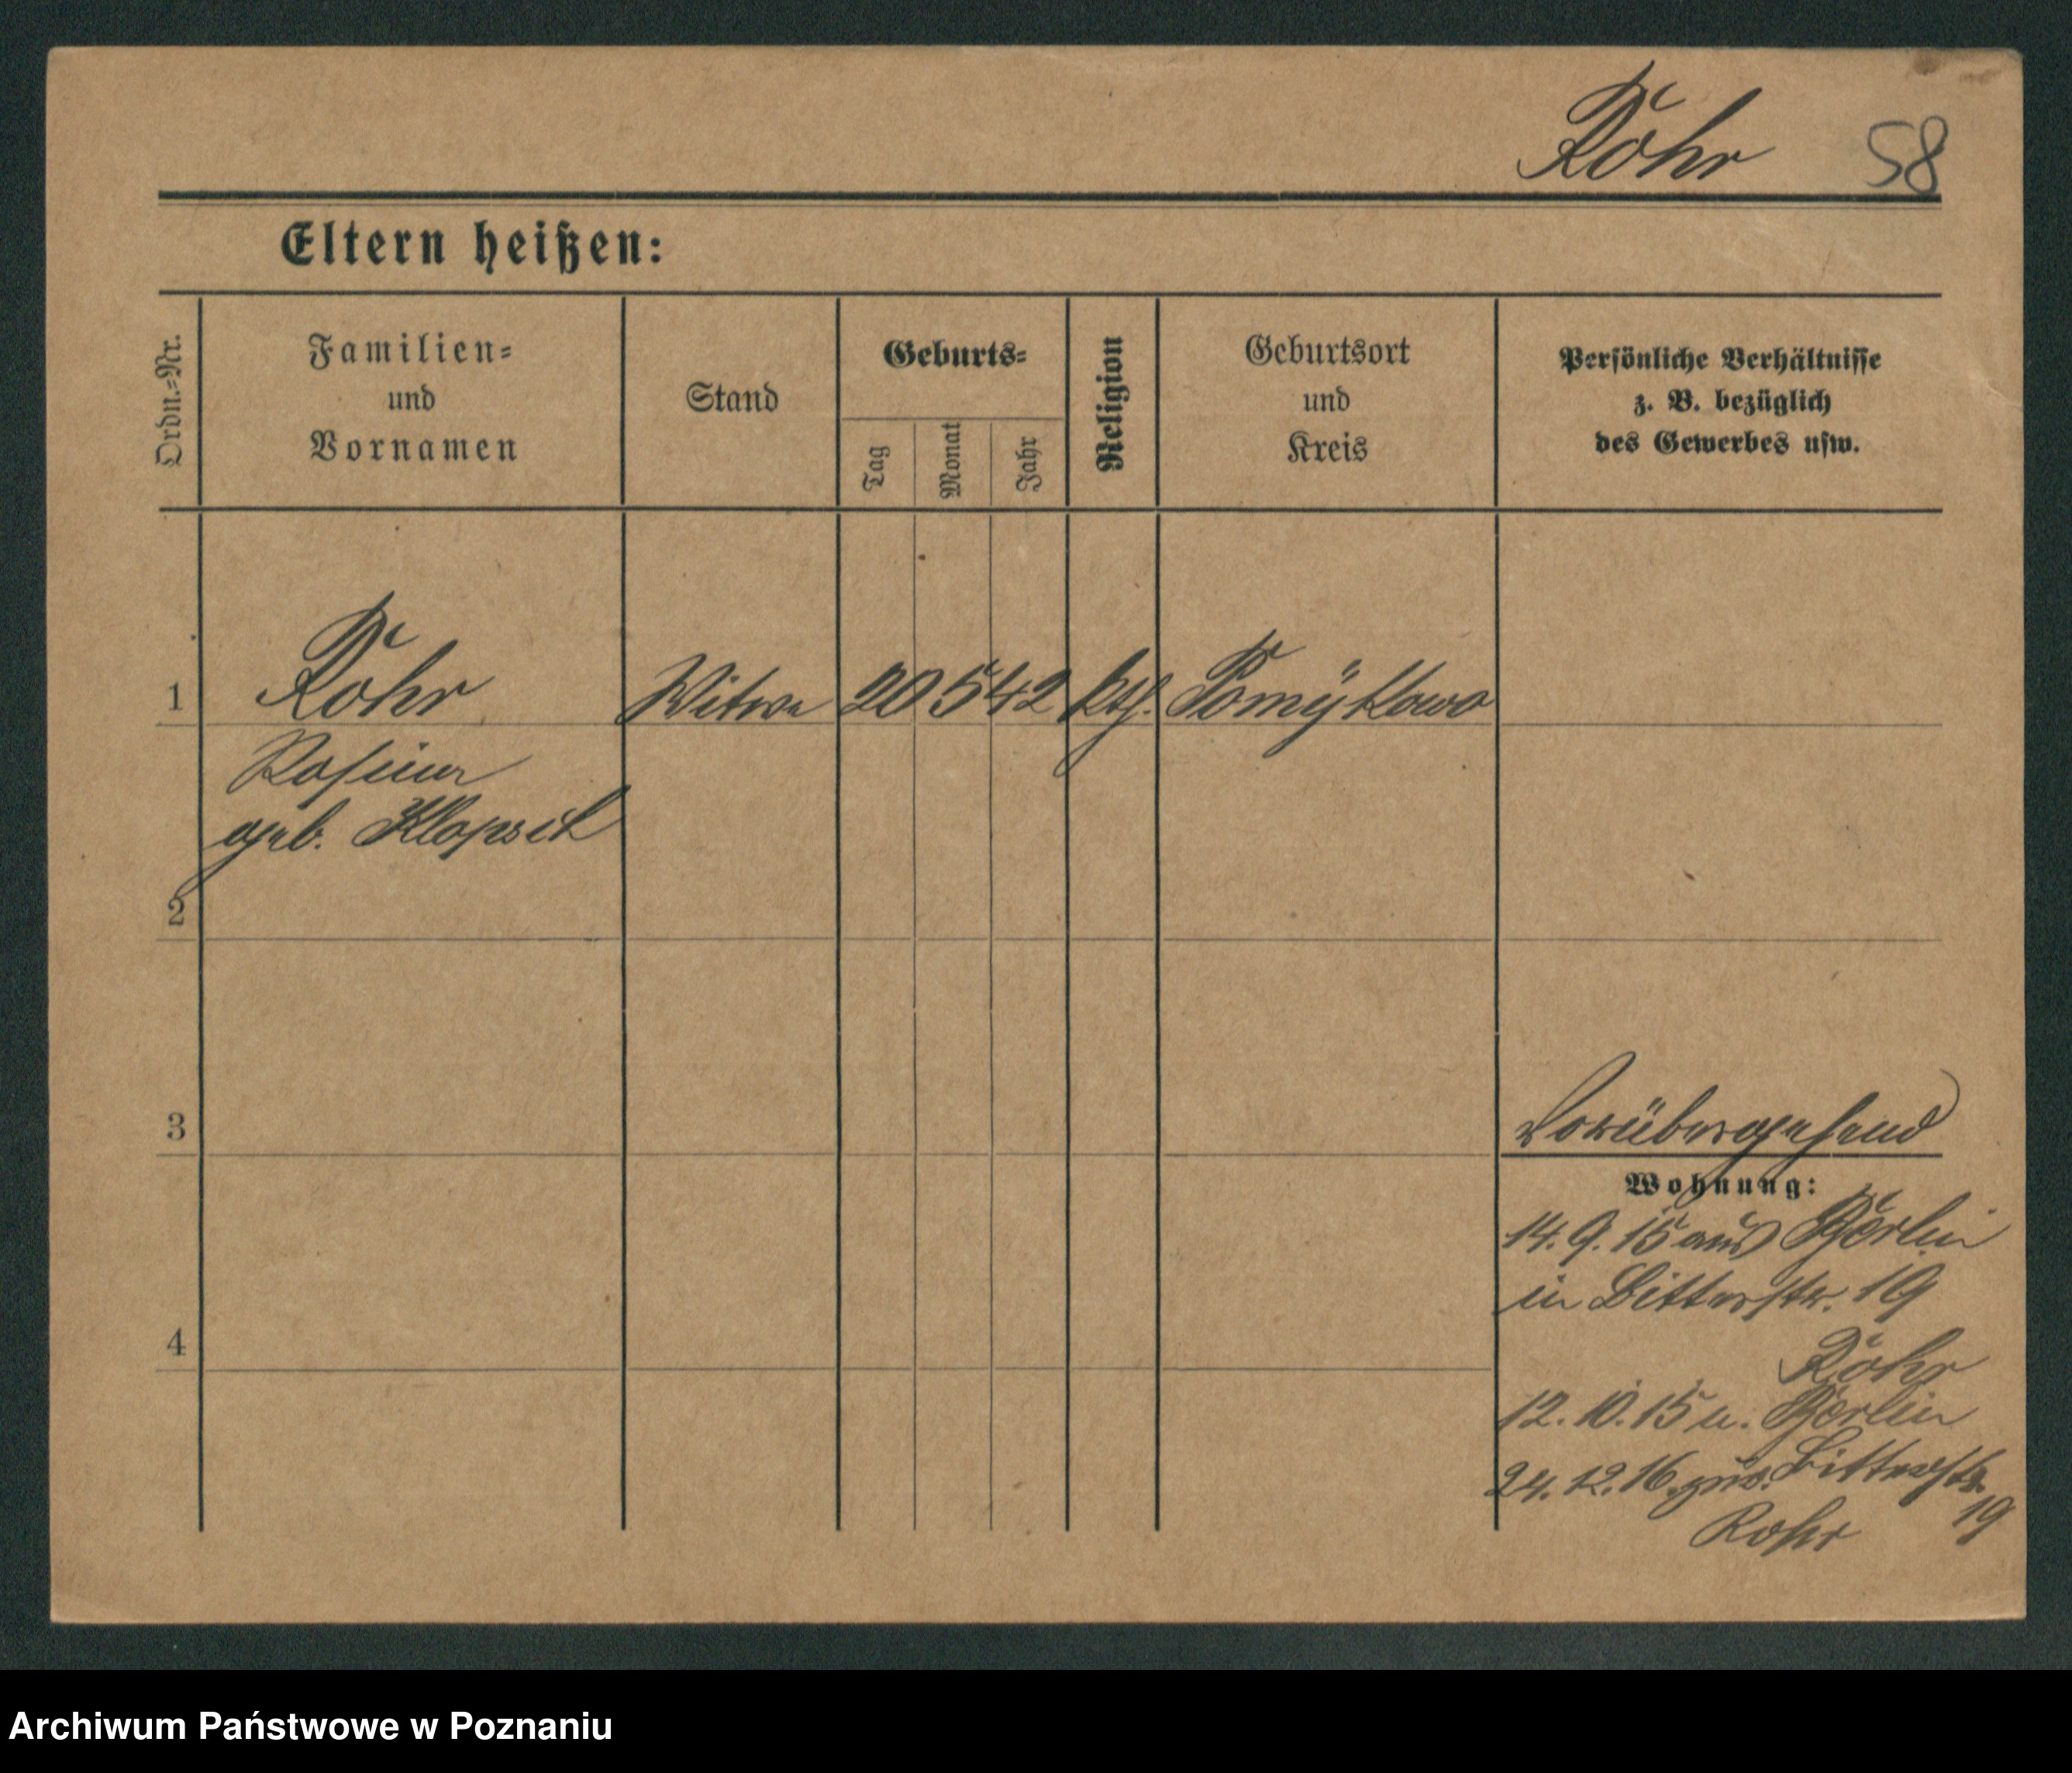 Rohr 58
Eltern heißen:
Ordn.=Nr.
Familien=
und
Vornamen
Stand
Geburts=
Tag
Monat
Jahr
Religion
Geburtsort
und
Kreis
Persönliche Verhältnisse
z. B. bezüglich
des Gewerbes usw.
1 Rohr Witwe 20 5 42 kth. Pomÿkowo
Rosina
geb. Klopsch
2
3
Vorübergehend
Wohnung:
14. 9. 15 aus Berlin
in Bitterstr. 19
4
Rohr
12. 10. 15 n. Berlin
24. 12. 16. zur. Bitterstr.
19
Rohr
Archiwum Państwowe w Poznaniu